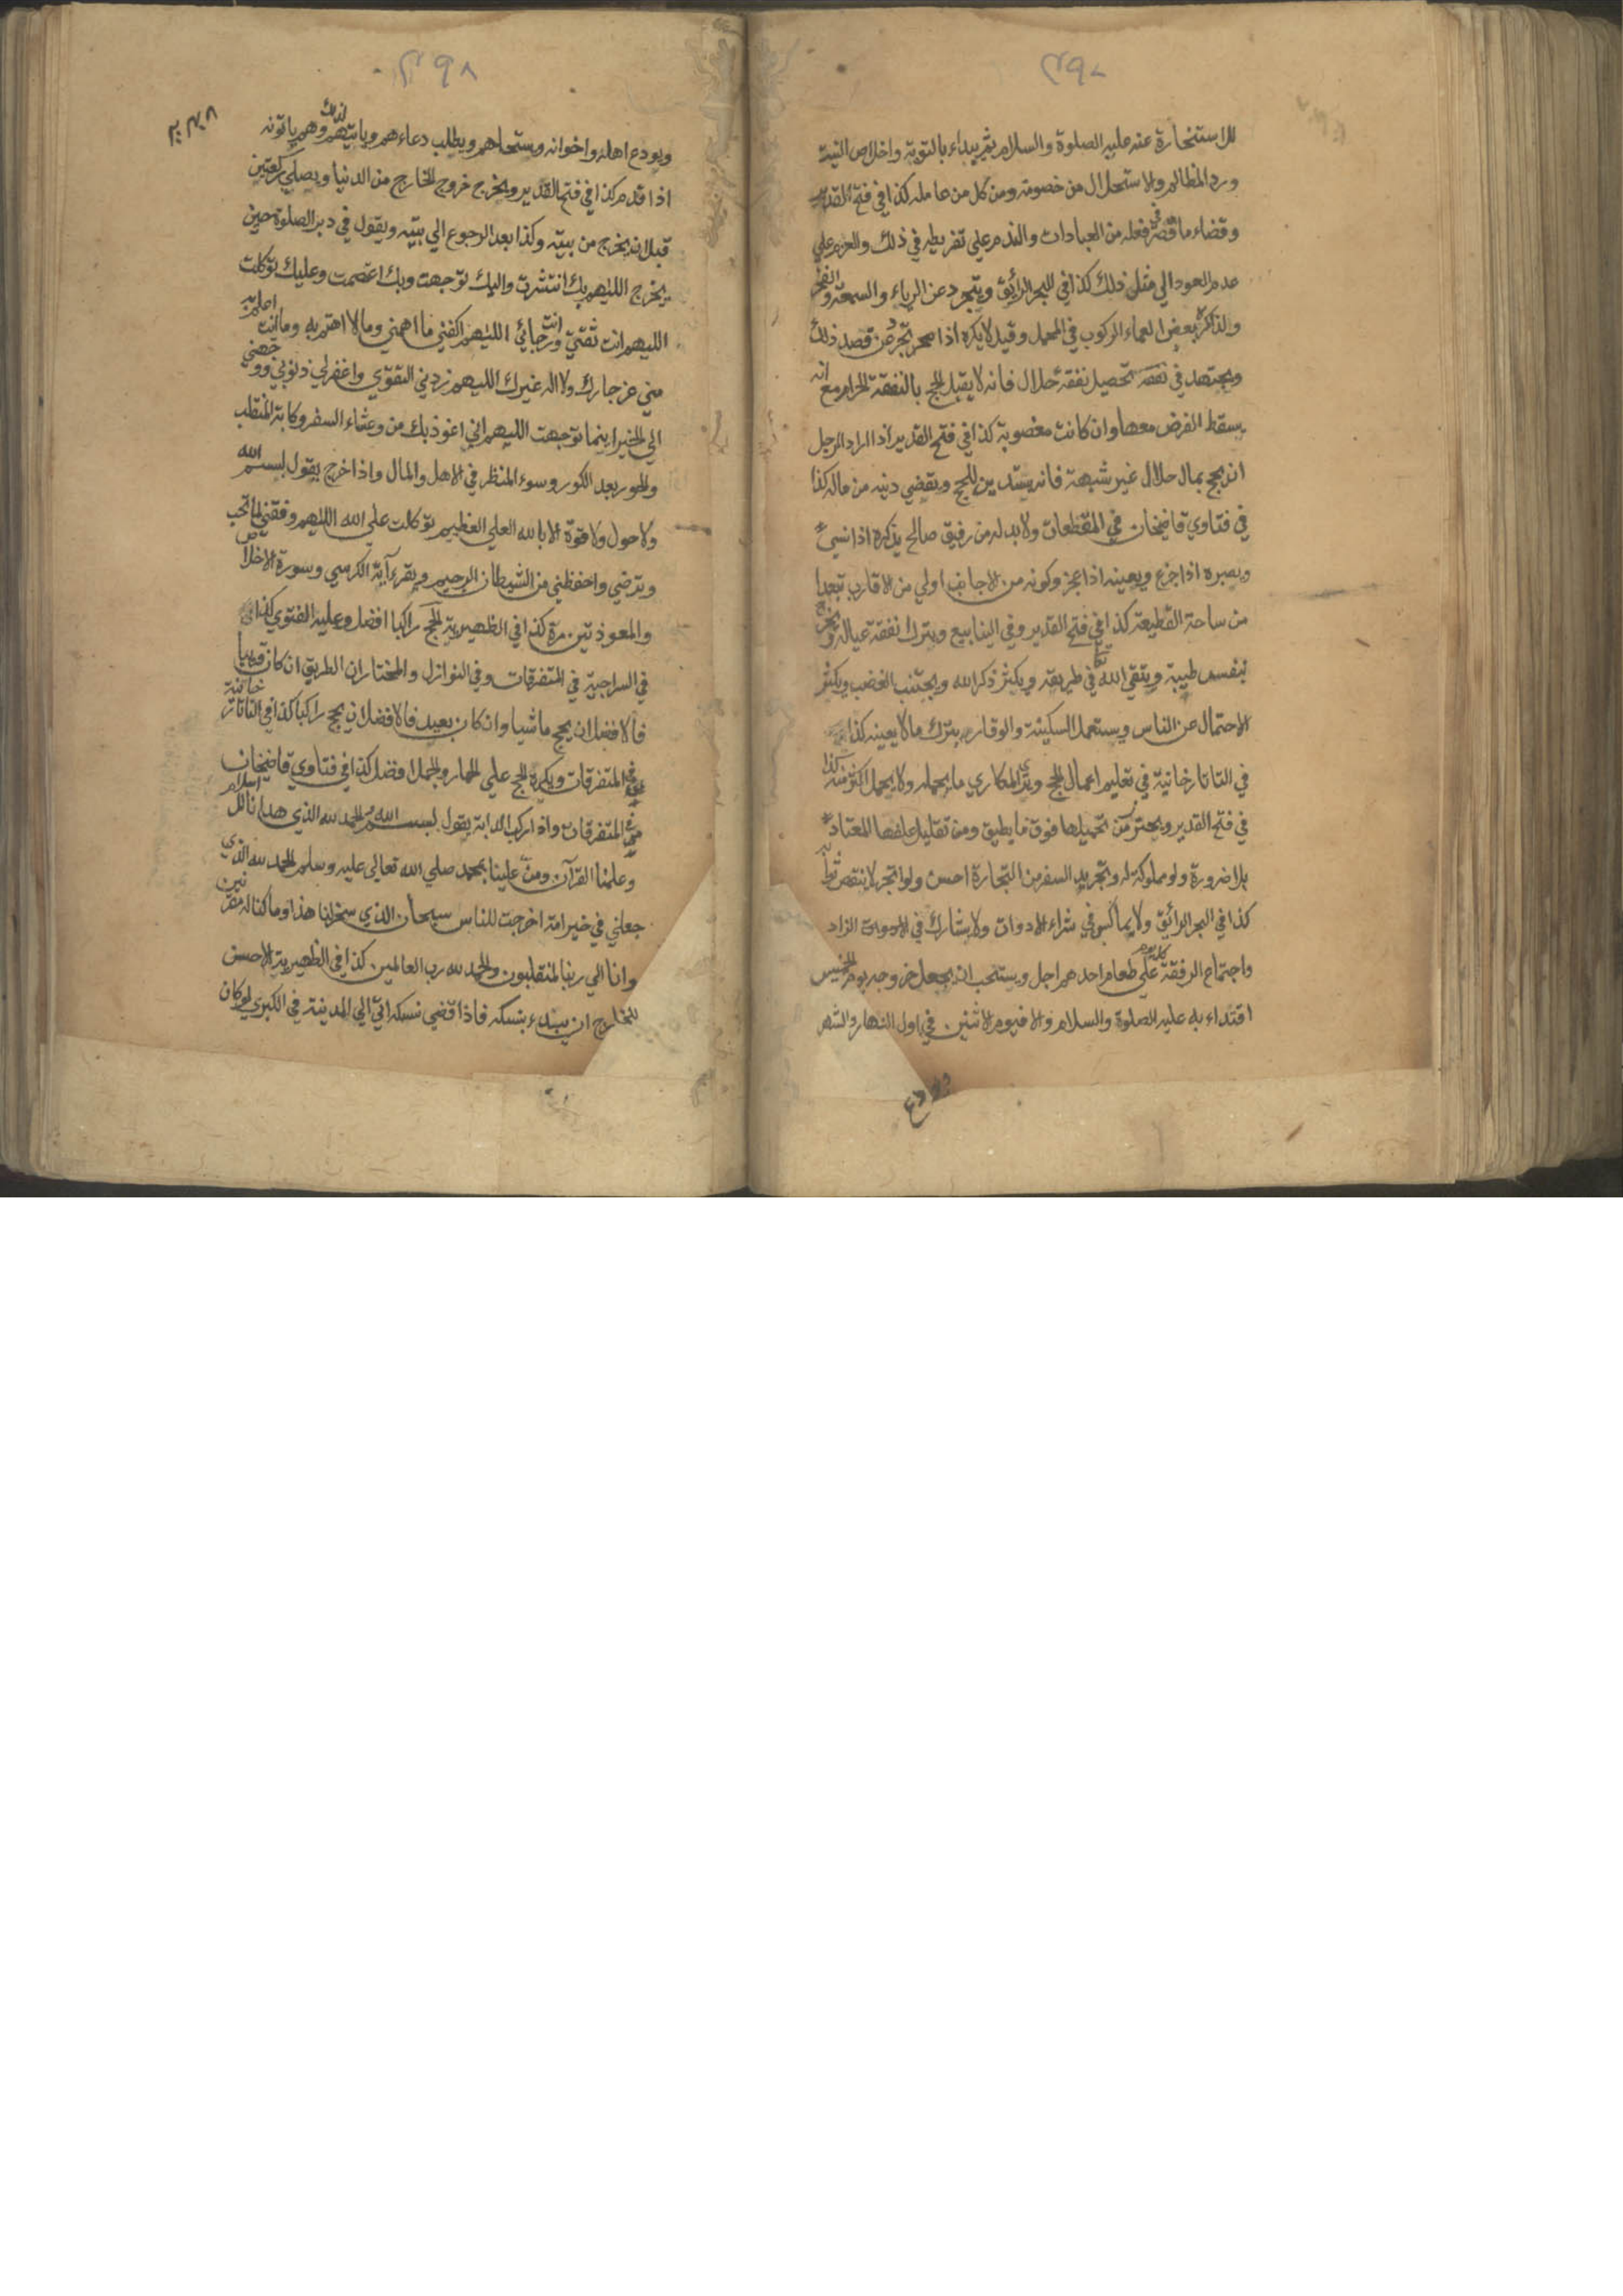 ٤٩٧
للاستخارة عنه عليه الصلوة والسلام ثم يبداء بالتوبة واخلاص النية
ورد المظالم والاستحلال من خصومه ومن كل من عامله كذا في فتح القدير
وقضاء ما قصر في فعله من العبادات والندم على تفريطه في ذلك والعزم علي
عدم العود الي مثل ذلك كذا في البحر الرائق ويتجرد عن الرياء والسمعة والفخر
ولذا كره بعض العلماء الركوب في المحمل وقيل لا يكره اذا تجرد عن قصد ذلك
ويجتهد في تحصيل نفقة حلال فانه لا يقبل الحج بالنفقة الحرام مع انه
يسقط الفرض معها وان كانت مغصوبة كذا في فتح القدير اذا اراد الرجل
ان يحج بمال حلال غير شبهة فانه يستدين للحج ويقضي دينه من ماله كذا
في فتاوي قاضيخان في المقطعات ولا بد له من رفيق صالح يذكره اذا نسي
ويصبره اذا جزع ويعينه اذا عجز وكونه من الاجانب اولي من الاقارب تبعدا
من ساحة القطيعة كذا في فتح القدير وفي الينابيع ويترك نفقة عياله ويخرج
بنفس طيبة ويتقي الله في طريقه ويكثر ذكر الله ويجتنب الغضب ويكثر
الاحتمال عن الناس ويستعمل السكينة والوقار بترك ما لا يعينه كذا
في التاتارخانية في تعليم اعمال الحج ويري المكاري ما يحمله ولا يحمل اكثر منه كذا
في فتح القدير ويحترز من تحميلها فوق ما يطيق ومن تقليل علفها المعتاد
بلا ضرورة ولو مملوكه له وتجريد السفر من التجارة احسن ولو اتجر لا ينقص ثوابه
كذا في البحر الرائق ولا يماكس في شراء الادوات ولا يشارك في الزاد
واجتماع الرفقة كل يوم علي طعام احدهم اجل ويستحب ان يجعل خروجه يوم الخميس
اقتداء به عليه الصلوة والسلام والا فيوم الاثنين في اول النهار والشهر
٤٩٨
ويودع اهله واخوانه ويستحلهم ويطلب دعاءهم ويأتيهم لذلك وهم ياتونه
اذا قدم كذا في فتح القدير ويخرج خروج الخارج من الدنيا ويصلي ركعتين
قبل ان يخرج من بيته وكذا بعد الرجوع الي بيته ويقول في دبر الصلوة حين
يخرج اللهم بك انتشرت واليك توجهت وبك اعتصمت وعليك توكلت
اللهم انت ثقتي وانت رجائي اللهم اكفني ما اهمني وما لا اهتم به وما انت اعلم به
مني عز جارك ولا اله غيرك اللهم زدني التقوي واغفرلي ذنوبي ووجهني
الي الخير اينما توجهت اللهم اني اعوذ بك من وعثاء السفر وكابة المنقلب
والحور بعد الكور وسوء المنظر في الاهل والمال واذا خرج يقول بسم الله
ولا حول ولا قوة الا بالله العلي العظيم توكلت علي الله اللهم وفقني لما تحب
وترضي واحفظني من الشيطان الرجيم ويقرء آية الكرسي وسورة الاخلاص
والمعوذتين مرة كذا في الظهيرية الحج راكبا افضل وعليه الفتوي كذا
في السراجية في المتفرقات وفي النوازل والمختار ان الطريق ان كان قريبا
فالافضل ان يحج ماشيا وان كان بعيد فالافضل ان يحج راكبا كذا في التاتارخانية
في المتفرقات ويكره الحج علي الحمار والجمل افضل كذا في فتاوي قاضيخان
في المتفرقات واذا ركب الدابة يقول بسم الله والحمد لله الذي هدانا للاسلام
وعلمنا القرآن ومن علينا بمحمد صلي الله تعالي عليه وسلم الحمد لله الذي
جعلني في خير امة اخرجت للناس سبحان الذي سخر لنا هذا وما كنا له مقرنين
وانا الي ربنا لمنقلبون والحمد لله رب العالمين كذا في الظهيرية الاحسن
للخارج ان يبدء بنسكه فاذا قضي نسكه اتي الي المدينة في الكبري لو كان